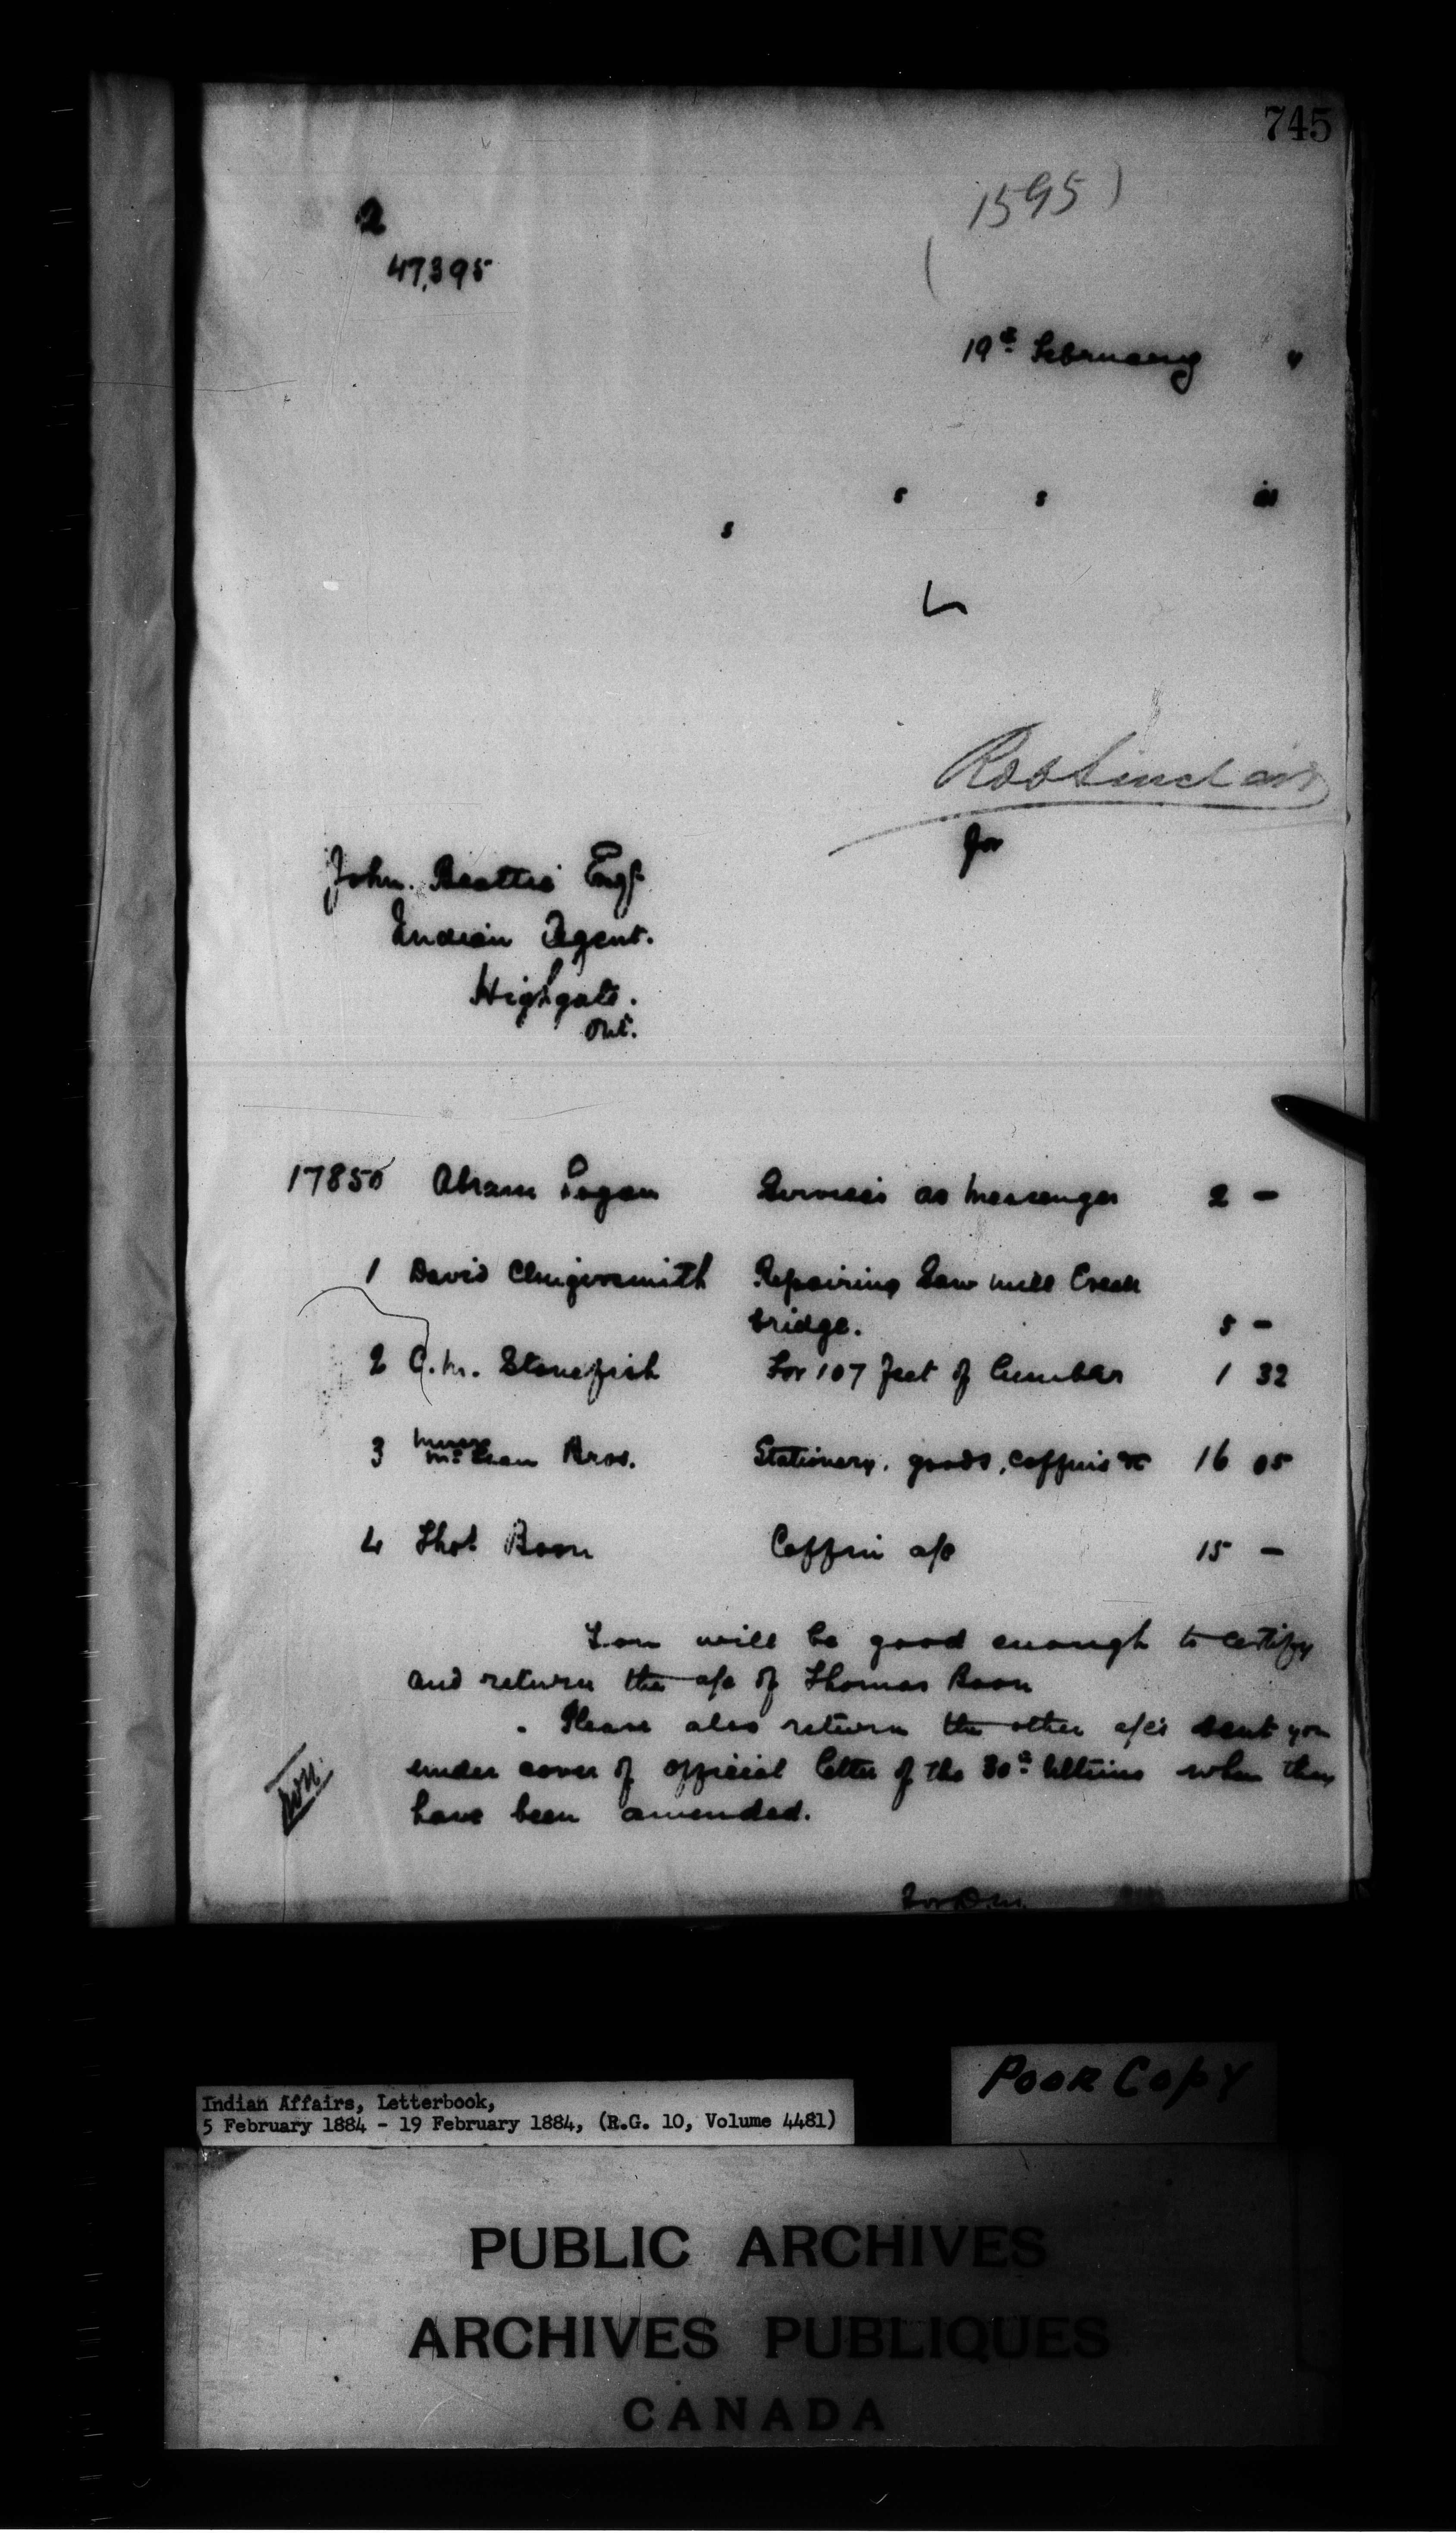 745
1595)
2
47,395
19th February 4
s s is
s
Rob Sinclair
for
John. Beattie Esqr.
Indian Agent.
Highgate.
Ont.
17850 Abram Logan Services as Messenger 2 -
1 David Clingersmith Repairing Saw mill Creek
bridge. 5 -
2 C.M. Stonefish For 107 feet of lumber 1 32
3 Messrs McLean Bros. Stationery, goods, coffins &c 16 05
4 Thos Boon Coffin a/c 15 -
You will be good enough to certify
and return the a/c of Thomas Boon
Please also return the other a/cs sent you
under cover of official letter of the 30th Ultimo when they
have been amended.
for D.M.
Indian Affairs, Letterbook,
5 February 1884 - 19 February 1884, (R.G. 10, Volume 4481)
Poor Copy
PUBLIC ARCHIVES
ARCHIVES PUBLIQUES
CANADA